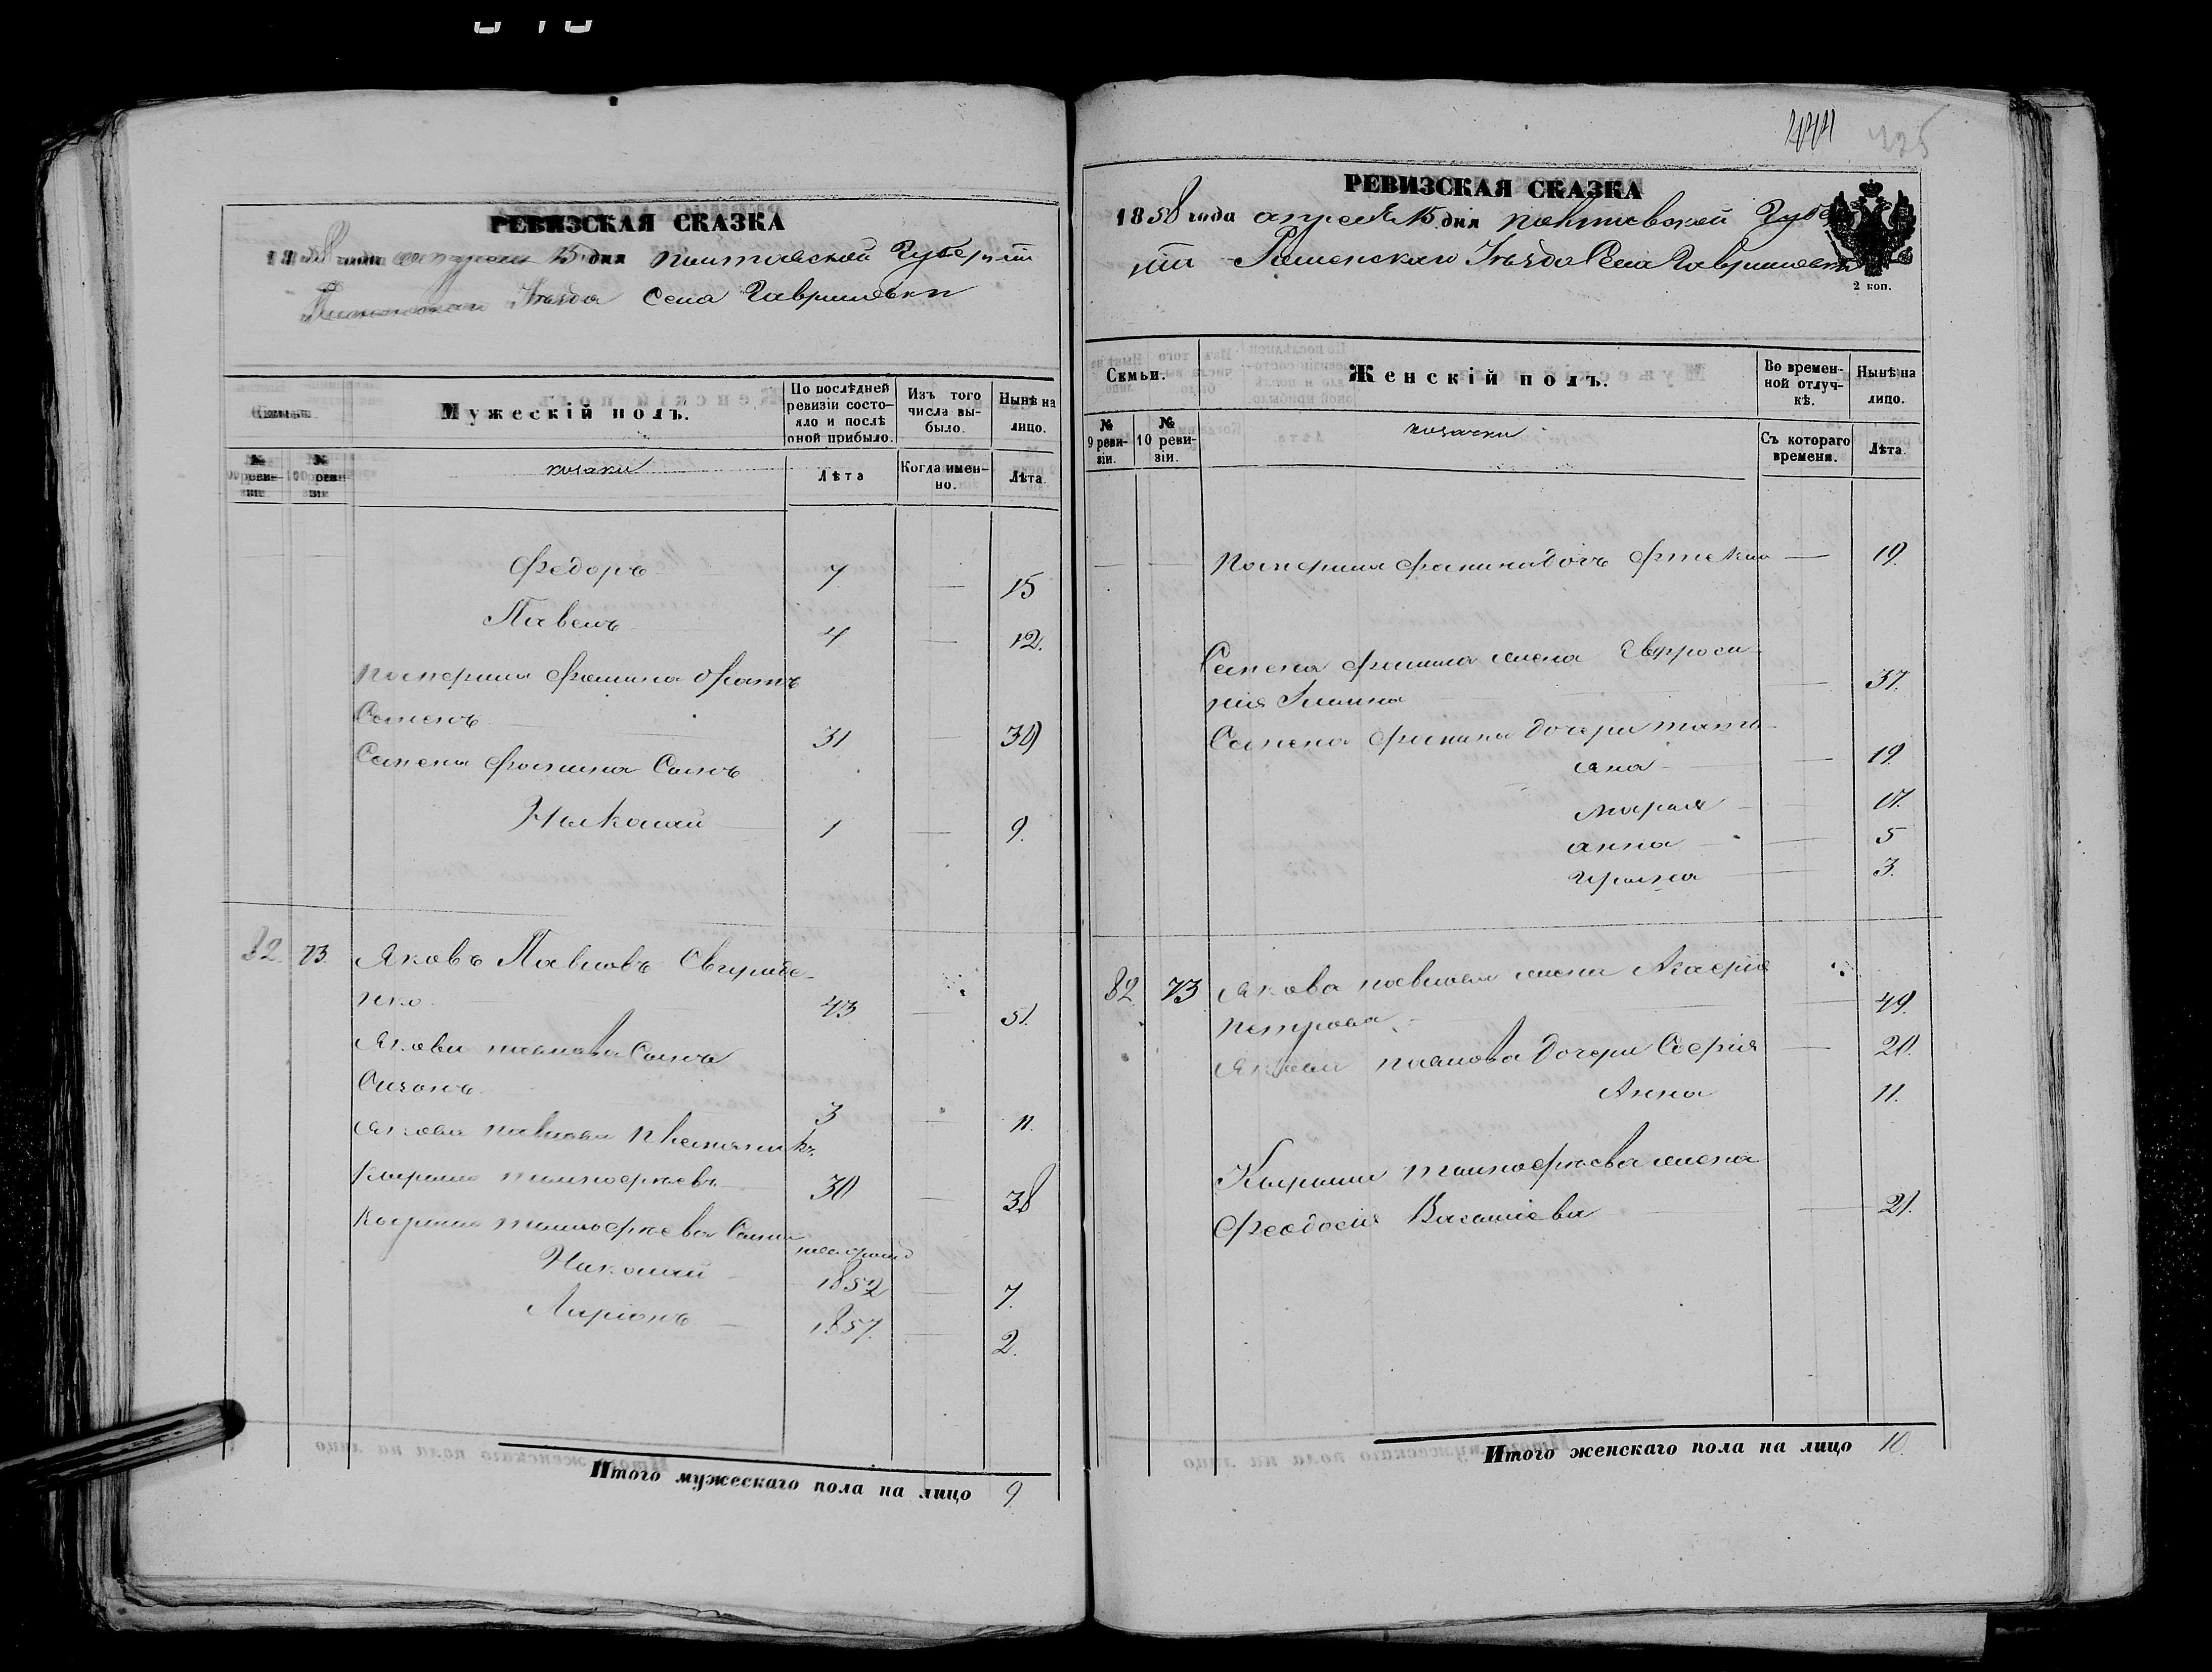 РЕВИЗСКАЯ СКАЗКА
1858 года апреля 15 дня Полтавской Губерніи
Роменскаго Уезда Села Гавришовки
Семьи.
Мужескій полъ.
По послѣдней ревизіи состояло и послѣ оной прибыло.
Изъ того числа выбыло.
Нынѣ на лицо.
№ 9 ревизіи.
№ 10 ревизіи.
козаки
Лѣта
Когда именно.
Лѣта.
Федоръ 7 — 15
Павелъ 4 — 12.
Фомина братъ
Семенъ 31 — 39
Семена Фомина Сынъ
Николай 1 — 9.
82. 73. Яковъ Павловъ
нко. 43 — 51.
Якова Павлова Сынъ
Созонъ 3 — 11.
Якова Павлова племяникъ
30 — 38
Сыны
Николай 1852 — 7.
Ларіонъ — 1857. — 2.
Итого мужескаго пола на лицо 9.
325
РЕВИЗСКАЯ СКАЗКА
1858 года апреля 15 дня Полтавской Губерніи
Роменскаго Уезда Села Гавришовки
2 коп.
Семьи.
Женскій полъ.
Во временной отлучкѣ.
Нынѣ на лицо.
№ 9 ревизіи.
№ 10 ревизіи.
козачки
Съ котораго времени.
Лѣта.
Фомина дочь — 19.
Семена Фомина жена Евфроси-
нія — 37.
Семена Фомина дочери Татя-
яна — 19.
Марія — 17.
Анна — 5
Ирина — 3.
82. 73 Якова Павлова жена Агафія
Петрова — 49.
Якова Павлова дочери Софія — 20.
Анна 11.
жена
Феодосія Василіева — 21.
Итого женскаго пола на лицо 10.